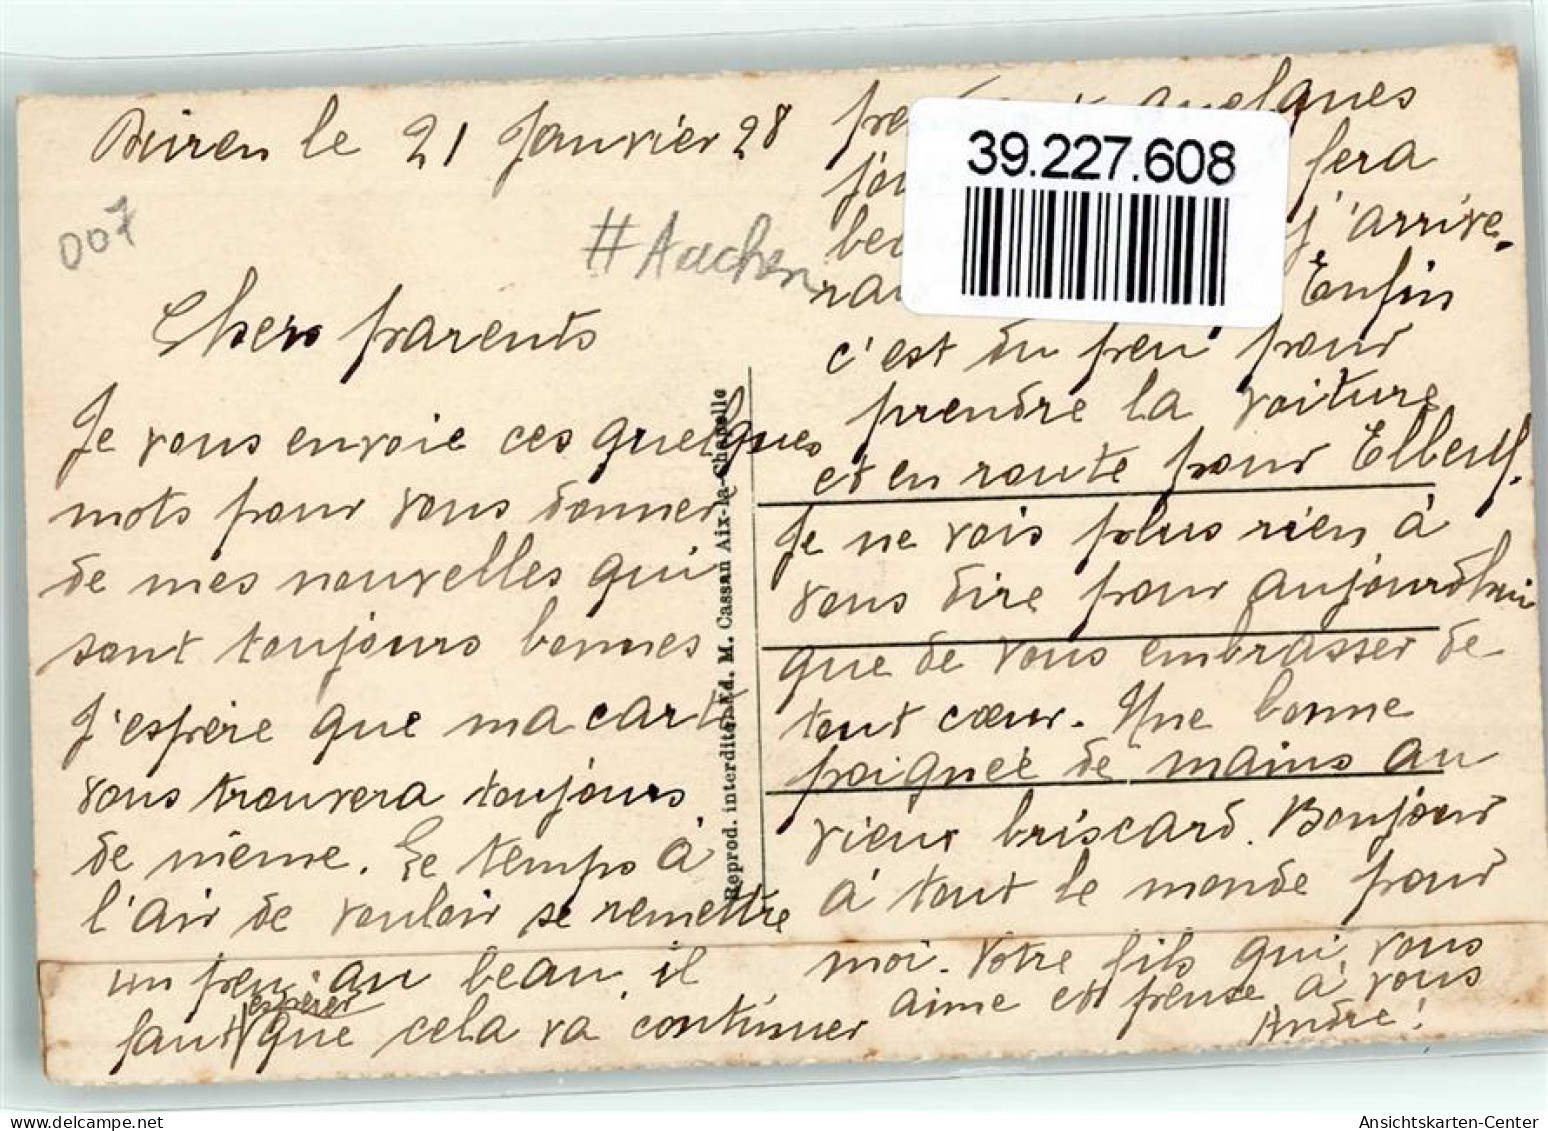 Düren le 21 Janvier 28
007
#Aachen
Chers parents
Je vous envoie ces quelques
mots pour vous donner
de mes nouvelles qui
sont toujours bonnes
J'espère que ma carte
vous trouvera toujours
de même. Le temps à
l'air de vouloir se remettre
un peu au beau, il
espérer
faut que cela va continuer
Reprod. interdite. Ed. M. Cassan Aix-la-Chapelle
quelques
fera
j'arrive.
Enfin
c'est du peu pour
prendre la voiture
et en route pour Elbeuf.
Je ne vois plus rien à
vous dire pour aujourd'hui
que de vous embrasser de
tout cœur. Une bonne
poignée de mains au
vieux briscard. Bonjour
à tout le monde pour
moi. Votre fils qui vous
aime et pense à vous
André!
39.227.608
Ansichtskarten-Center